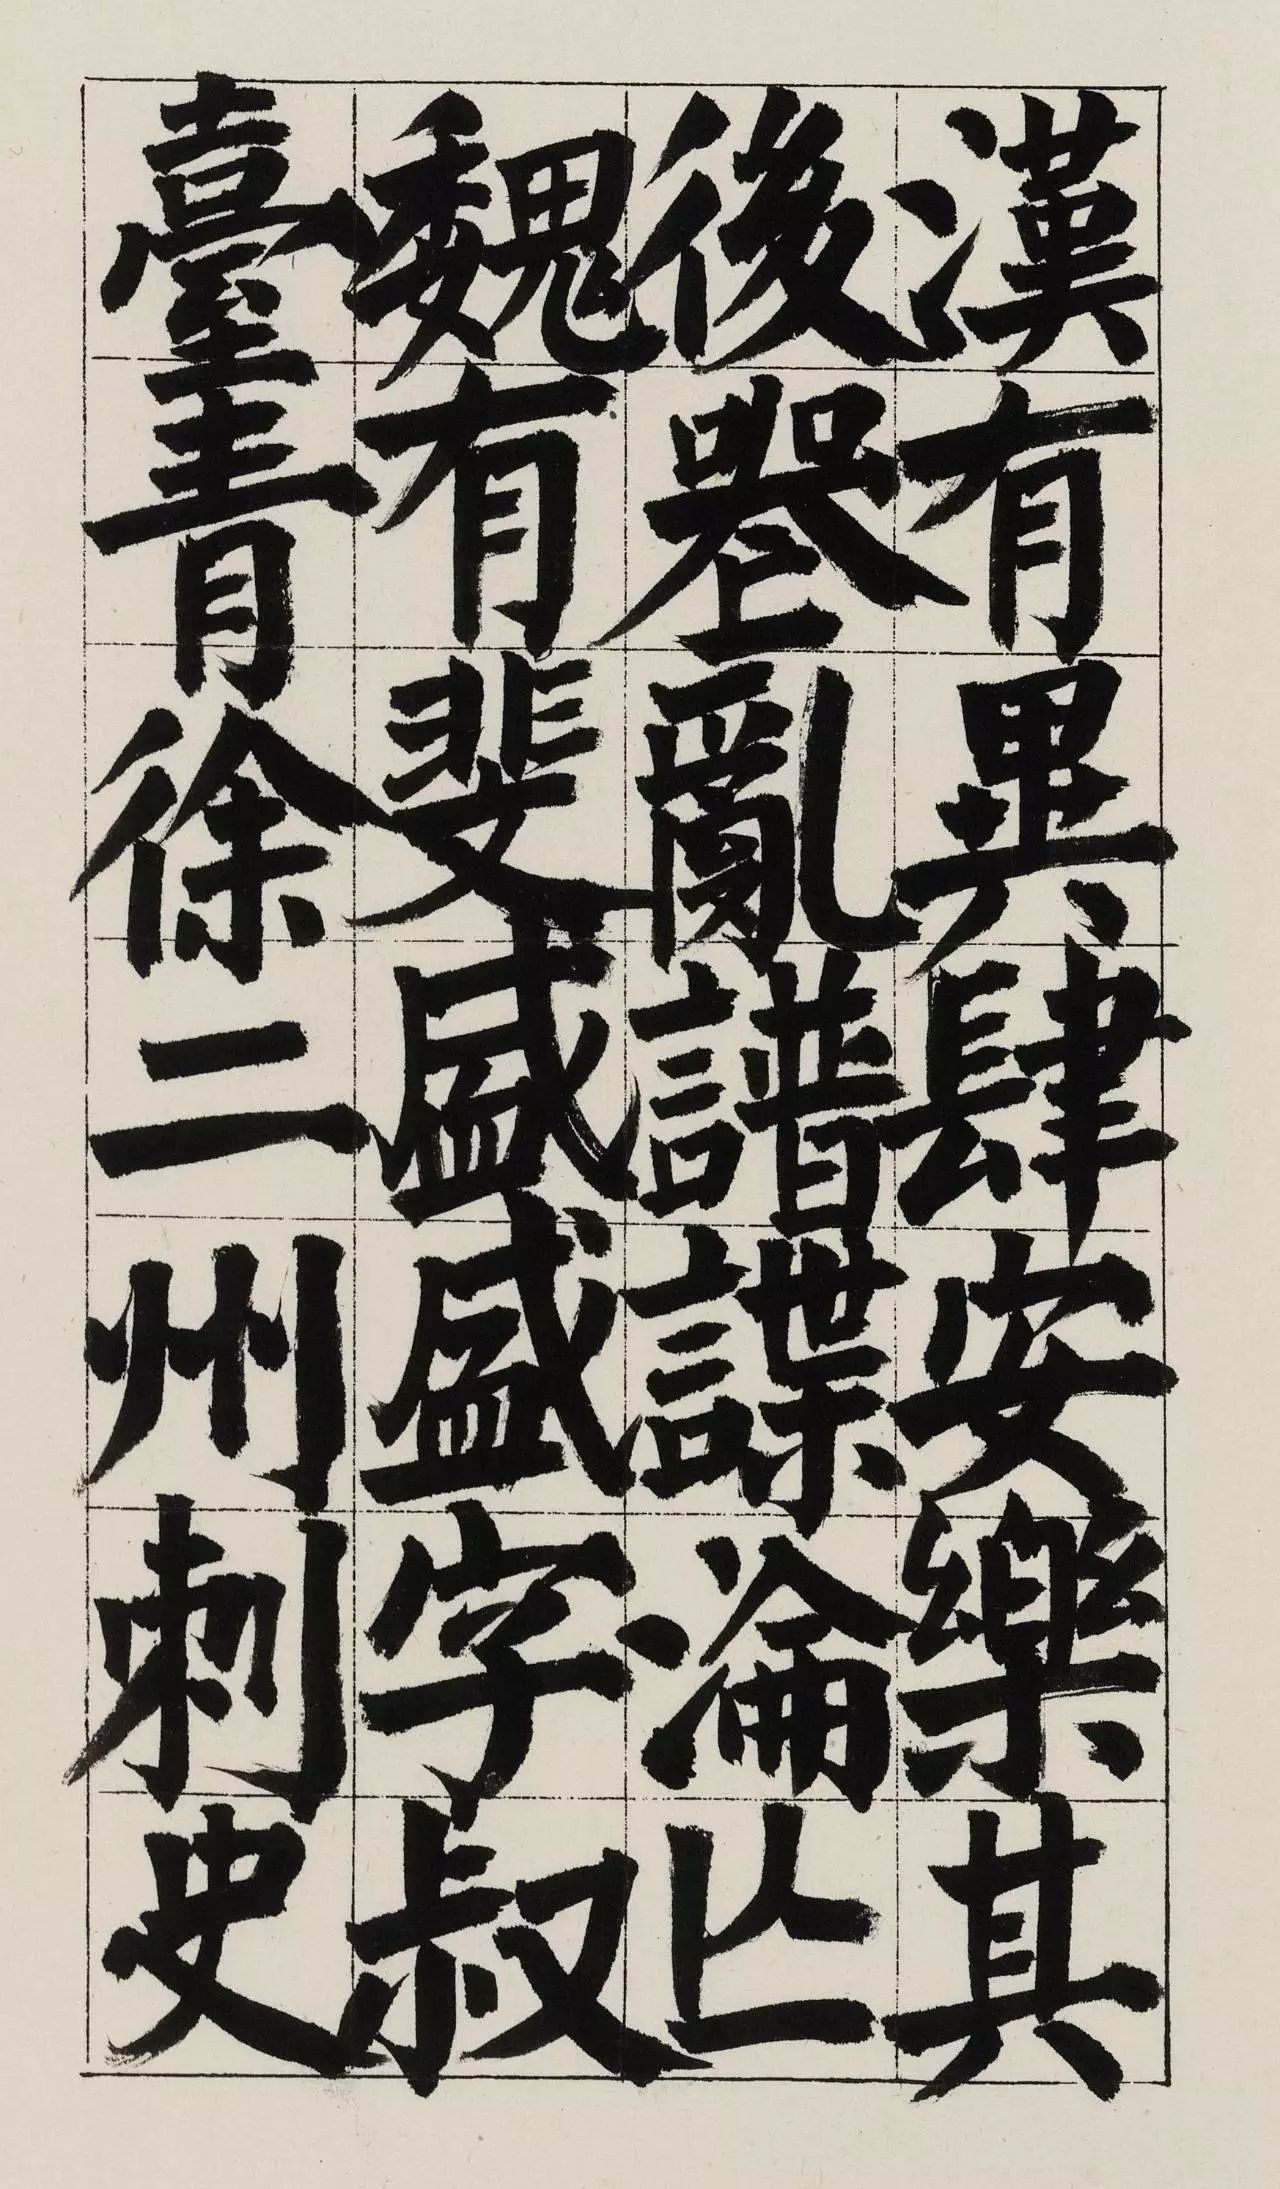 漢有異肆安樂其
後喪亂譜諜淪亾
魏有斐盛盛字叔
臺青徐二州刺史